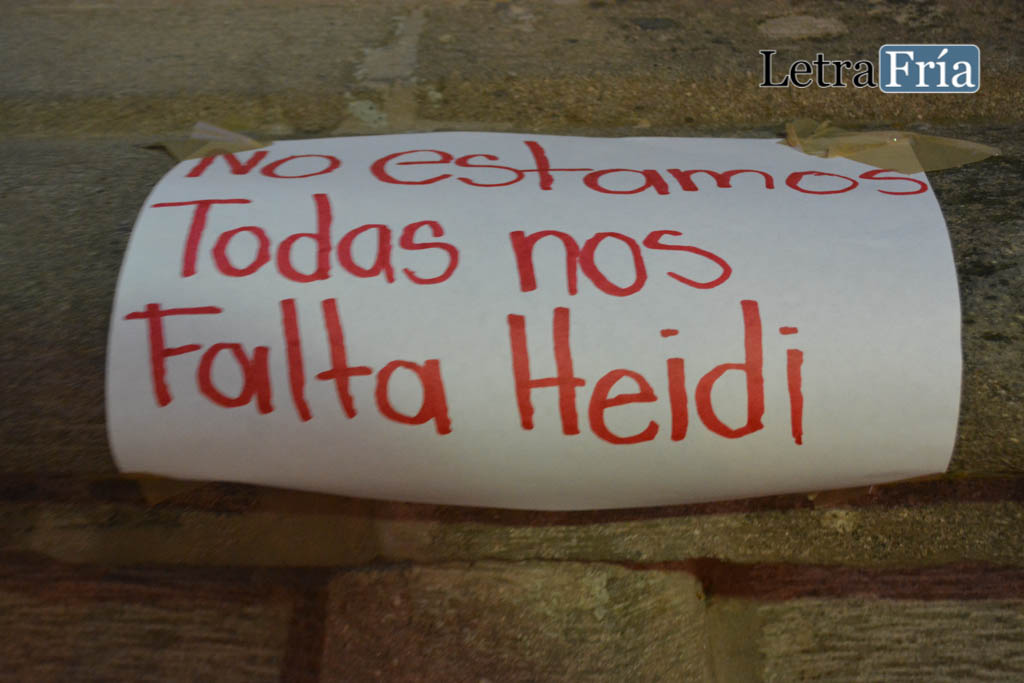 LetraFría
No estamos
Todas nos
Falta Heidi